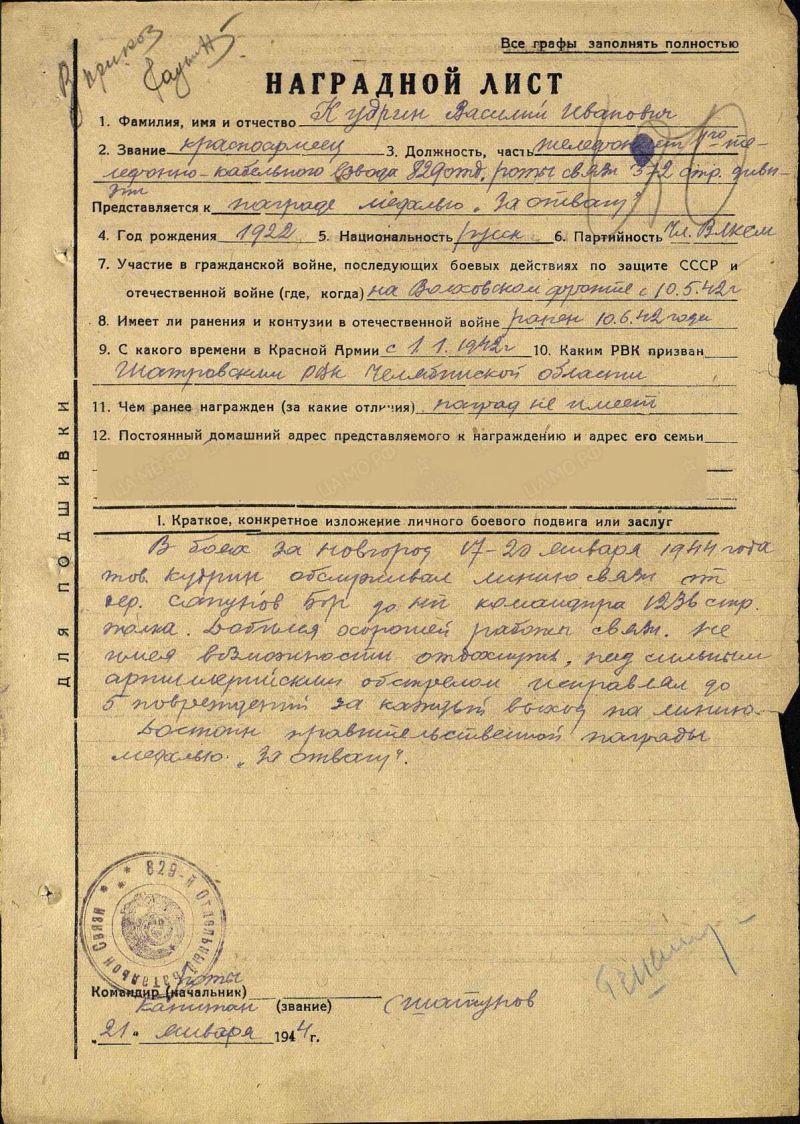 В приказ
Все графы заполнять полностью
НАГРАДНОЙ ЛИСТ
1. Фамилия, имя и отчество Кудрин Василий Иванович
2. Звание красноармеец 3. Должность, часть телефонист 1го те-
лефонно-кабельного взвода 829 отд. роты связи 372 стр. диви-
зии
Представляется к награде медалью „За отвагу"
4. Год рождения 1922 5. Национальность русск 6. Партийность Чл. ВЛКСМ
7. Участие в гражданской войне, последующих боевых действиях по защите СССР и
отечественной войне (где, когда) на Волховском фронте с 10.5.42г
8. Имеет ли ранения и контузии в отечественной войне ранен 10.6.42 года
9. С какого времени в Красной Армии с 1.1.1942г 10. Каким РВК призван
Шатровским РВК Челябинской области
11. Чем ранее награжден (за какие отличия) наград не имеет
12. Постоянный домашний адрес представляемого к награждению и адрес его семьи
I. Краткое, конкретное изложение личного боевого подвига или заслуг
В боях за Новгород 17-20 января 1944 года
тов. Кудрин обслуживал линию связи от
дер. Сапунов Бор до НП командира 1236 стр.
полка. Добился хорошей работы связи. Не
имея возможности отдохнуть, под сильным
артиллерийским обстрелом исправлял до
5 повреждений за каждый выход на линию.
Достоин правительственной награды
медалью „За отвагу".
ДЛЯ ПОДШИВКИ
829-й Отдельный Батальон Связи
роты
Командир (начальник)
капитан (звание) Шатунов
„21" января 1944 г.